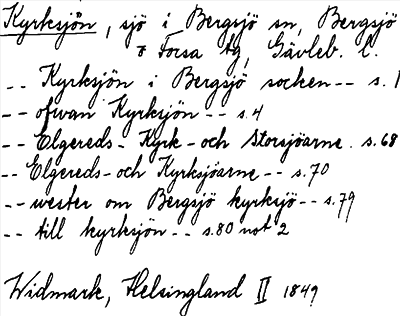 Kyrksjön, sjö i Bergsjö sn, Bergsjö
o Forsa tg, Gävleb. l.
-- Kyrksjön i Bergsjö socken -- s. 1
-- ofvan Kyrksjön -- s. 4
-- Elgereds- Kyrk- och Storsjöarne. s. 68
-- Elgereds- och Kyrksjöarne -- s. 70
-- wester om Bergsjö kyrksjö -- s. 79
-- till kyrksjön -- s. 80 not 2
Widmark, Helsingland II 1849